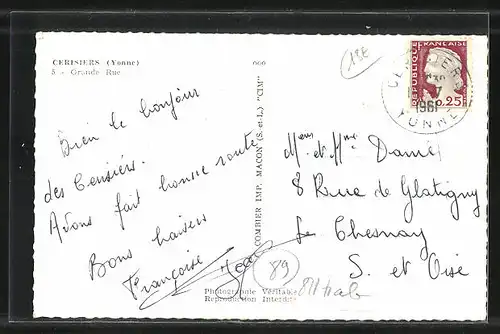 CERISIERS (Yonne)
5 - Grande Rue
Bien le bonjour
des Cerisiers.
Avons fait bonne route
Bons baisers
Françoise
Jean
COMBIER IMP. MACON (S.-et-L.) "CIM"
Photographie Véritable
Reproduction Interdite
89
15E
REPUBLIQUE FRANÇAISE
0,25
1961
YONNE
Mr et Mme
8 Rue de Glatigny
Le Chesnay
S. et Oise